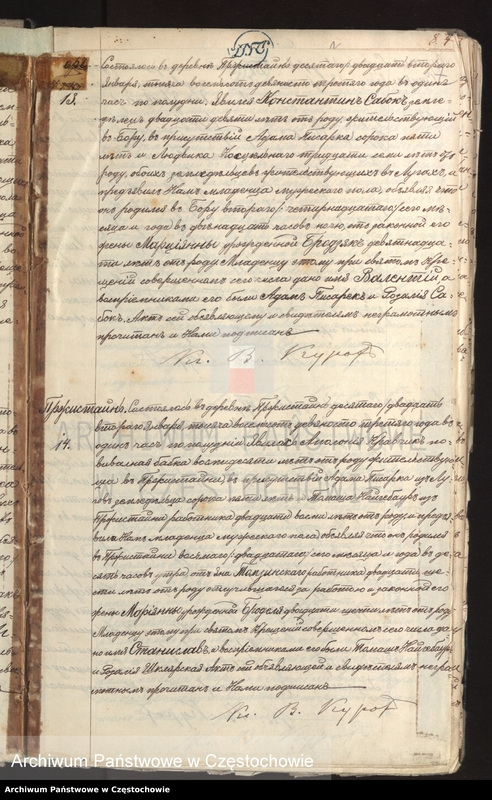 13.
Состоялось въ деревнѣ Пржистайнѣ десятаго / двадцать втораго
Января, тысяча восемьсотъ девяносто третьяго года въ одинъ
часъ по полудни. Явился Константинъ Сабокъ, земле-
дѣлецъ двадцати девяти лѣтъ отъ роду, жительствующій
въ Бору, въ присутствіи Адама Писарка сорока пяти
лѣтъ и Людвика тридцати семи лѣтъ отъ
роду, обоихъ земледѣльцевъ жительствующихъ въ Лугахъ, и
предъявилъ Намъ младенца мужескаго пола, объявляя что
онъ родился въ Бору втораго / четырнадцатаго / сего мѣ-
сяца и года въ двѣнадцать часовъ ночи, отъ законной его
жены Маріянны урожденной девятнадца-
ти лѣтъ отъ роду. Младенцу этому при святомъ Кре-
щеніи совершенномъ сего числа дано имя Валентій, а
воспріемниками его были Адамъ Писарекъ и Розалія Са-
бокъ. Актъ сей объявляющему и свидѣтелямъ неграмотнымъ
прочитанъ и Нами подписанъ
Кс. В.
Пржистайнъ.
14.
Состоялось въ деревнѣ Пржистайнѣ десятаго / двадцать
втораго Января, тысяча восемьсотъ девяносто третьяго года въ
одинъ часъ по полудни. Явилась Аполонія Кравчикъ, по-
вивальная бабка восьмидесяти лѣтъ отъ роду, жительствую-
щая въ Пржистайни, въ присутствіи Адама Писарка изъ Лу-
говъ, земледѣльца сорока пяти лѣтъ и Томаша изъ
Пржистайни работника двадцати восьми лѣтъ отъ роду, и предъя-
вила Намъ младенца мужескаго пола, объявляя что онъ родился
въ Пржистайни восьмаго / двадцатаго / сего мѣсяца и года въ де-
сять часовъ утра, отъ работника двадцати ше-
сти лѣтъ отъ роду отсутствующаго за работою и законной его
жены Маріянны урожденной двадцати шести лѣтъ отъ роду.
Младенцу этому при святомъ Крещеніи совершенномъ сего числа да-
но имя Станиславъ, а воспріемниками его были Томашъ
и Розалія Шклярская. Актъ сей объявляющей и свидѣтелямъ негра-
мотнымъ прочитанъ и Нами подписанъ
Кс. В.
Archiwum Państwowe w Częstochowie
Archiwum Państwowe w Częstochowie